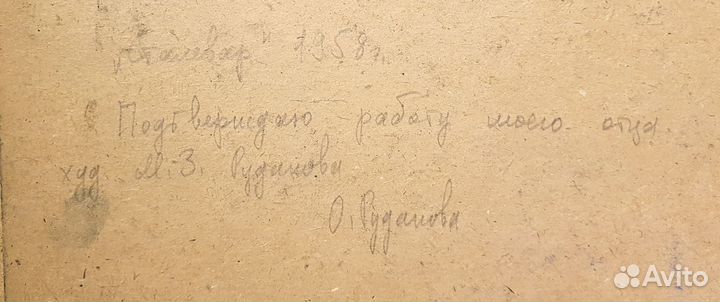 „Сталевар" 1958г.
Подтверждаю работу моего отца
худ. М.З. Рудакова
О. Рудакова
Avito